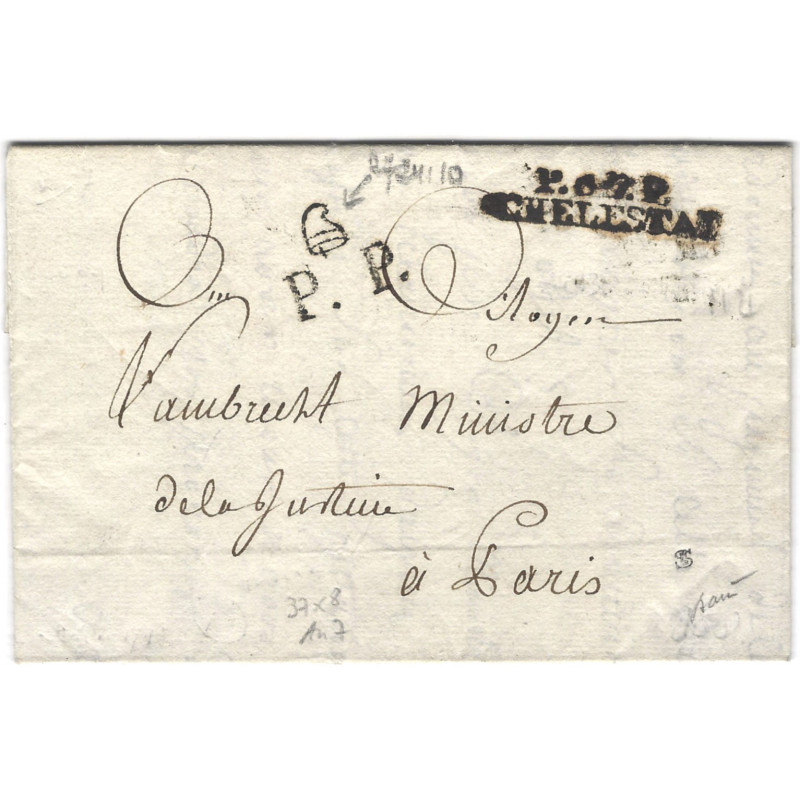 P. 67. P
SCHELESTAT
P. P.
Citoyen
Lambrecht Ministre
de la Justice
à Paris
S
37x8
An 7